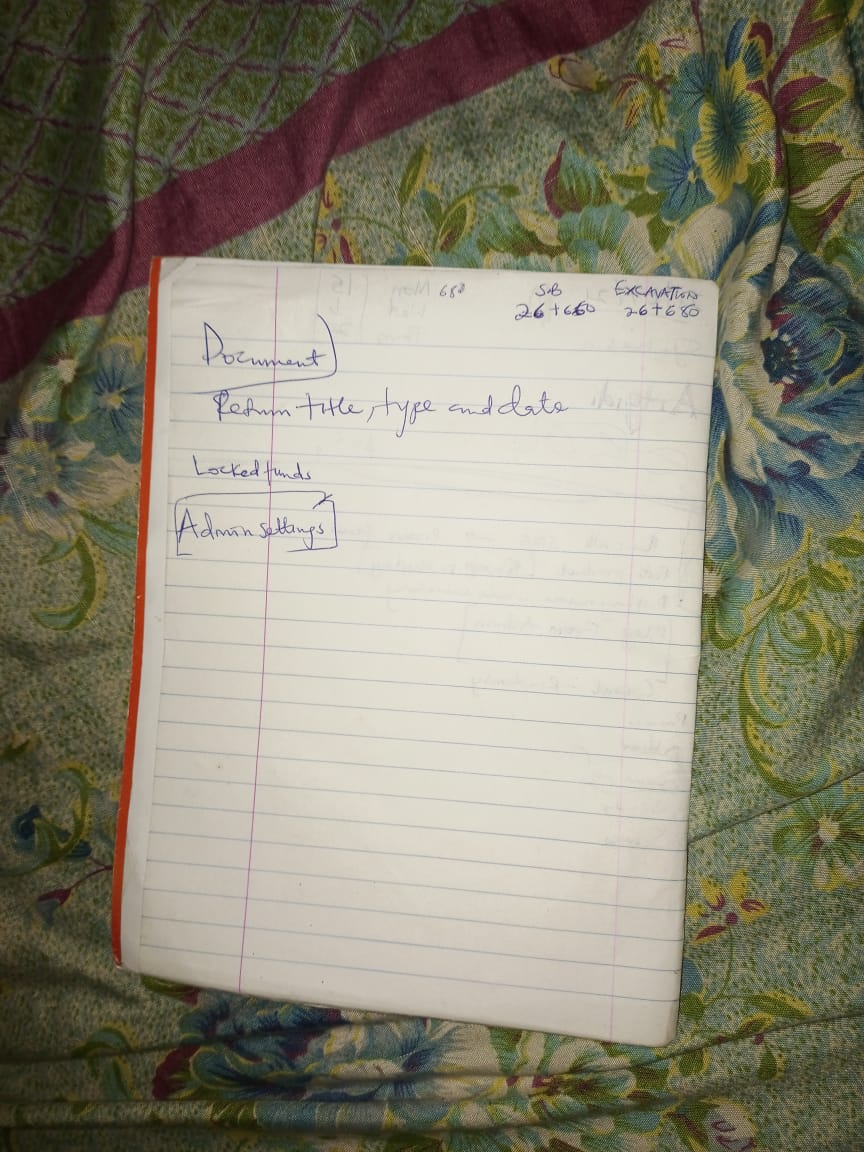 680 SB EXCAVATION
26+660 26+680
Document
Return title, type and date
Locked funds
Admin settings